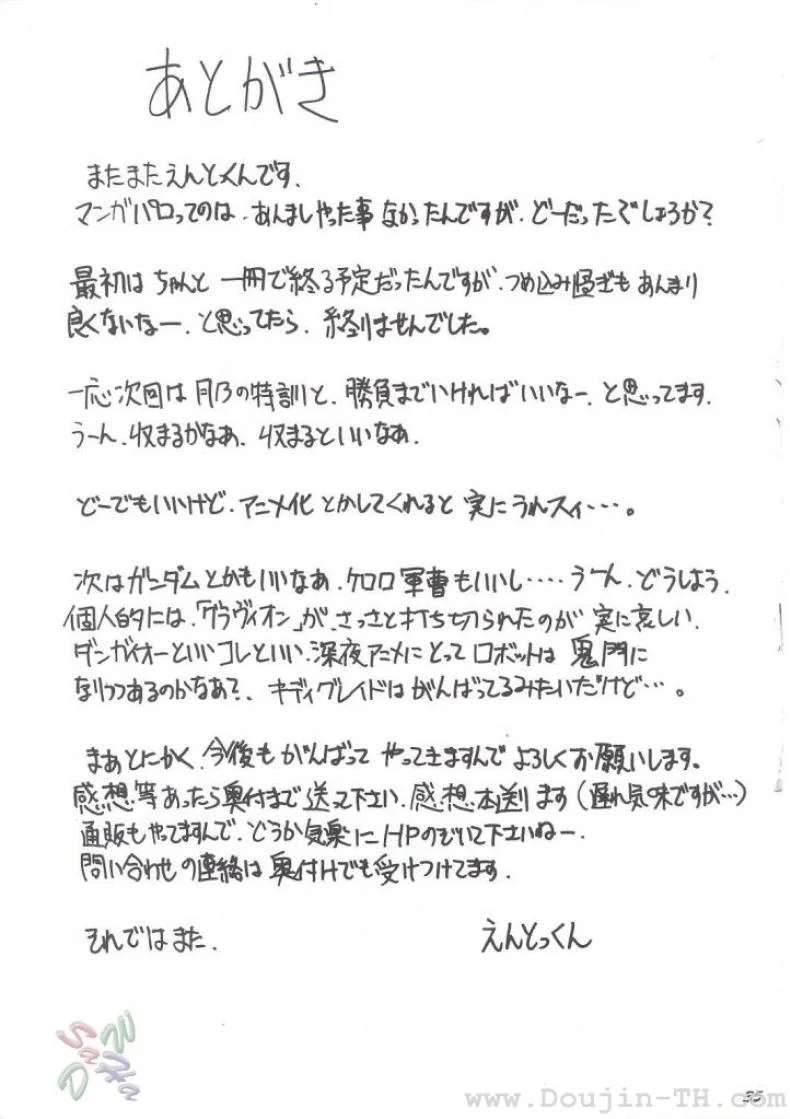 あとがき
またまたえんとっくんです。
マンガパロってのは、あんましやった事なかったんですが、どーだったでしょうか?
最初はちゃんと一冊で終る予定だったんですが、つめ込み過ぎもあんまり
良くないなー、と思ってたら、終りませんでした。
一応次回は月乃の特訓と、勝負までいければいいなー、と思ってます。
うーん、収まるかなあ、収まるといいなあ。
どーでもいいけど、アニメ化とかしてくれると実にうれスィ…。
次はガンダムとかもいいなあ、ケロロ軍曹もいいし‥‥うーん、どうしよう。
個人的には、「グラヴィオン」が、さっさと打ち切られたのが実に哀しい。
ダンガイオーといいコレといい、深夜アニメにとってロボットは鬼門に
なりつつあるのかなあ?、キディグレイドはがんばってるみたいだけど…。
まあとにかく、今後もがんばってやってきますんでよろしくお願いします。
感想等あったら奥付まで送って下さい、感想本送ります(遅れ気味ですが…)
通販もやてますんで、どうか気楽にHPのぞいて下さいねー。
問い合わせの連絡は奥付けでも受けつけてます。
それではまた。
えんとっくん
SaHa
www.Doujin-TH.com
35